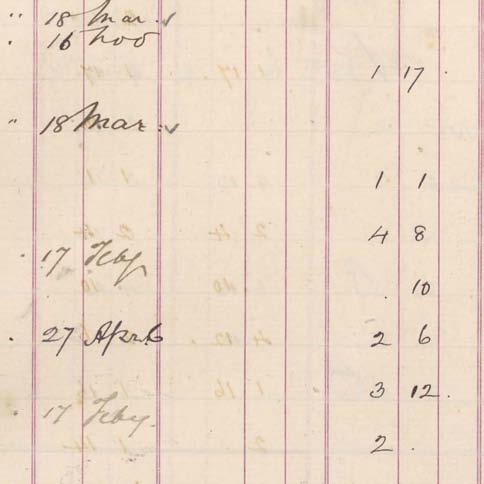 " 18 Mar.
. 16 Nov
1 17 .
" 18 Mar.
1 1
4 8
. 17 Feby
. 10
. 27 April 2 6
3 12 .
. 17 Feby.
2 .